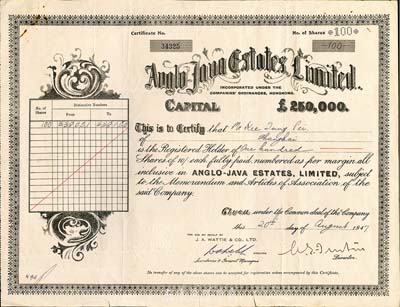 Certificate No.
No. of Shares *100*
34325
-100-
Anglo-Java Estates Limited.
INCORPORATED UNDER THE
COMPANIES' ORDINANCES, HONGKONG.
CAPITAL £250,000.
No. of Shares
Distinctive Numbers
From
To
100
This is to Certify that
of Shanghai
is the Registered Holder of One hundred
Shares of 10/ each fully paid numbered as per margin all
inclusive in ANGLO-JAVA ESTATES, LIMITED, subject
to the Memorandum and Articles of Association of the
said Company.
Given under the Common Seal of the Company
this 20th day of August 1947
FOR AND ON BEHALF OF
J. A. WATTIE & CO. LTD.
Secretaries & General Managers
Director.
No transfer of any of the above shares can be accepted for registration unless accompanied by this Certificate.